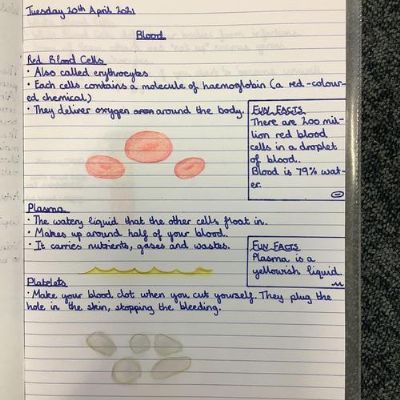 Tuesday 20th April 2021
Blood
Red Blood Cells
• Also called erythrocytes
• Each cells contains a molecule of haemoglobin (a red-colour-
ed chemical)
• They deliver oxygen around the body.
FUN FACTS
There are 200 mil-
lion red blood
cells in a droplet
of blood.
Blood is 79% wat-
er.
Plasma
• The watery liquid that the other cells float in.
• Makes up around half of your blood.
• It carries nutrients, gases and wastes.
FUN FACTS
Plasma is a
yellowish liquid.
Platelets
• Make your blood clot when you cut yourself. They plug the
hole in the skin, stopping the bleeding.